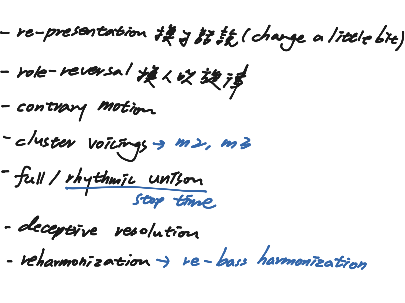 - re-presentation 換句話說 (change a little bit)
- role-reversal 換人
- contrary motion
- cluster voicings → m2, m3
- full / rhythmic unison
stop time
- deceptive resolution
- reharmonization → re-bass harmonization